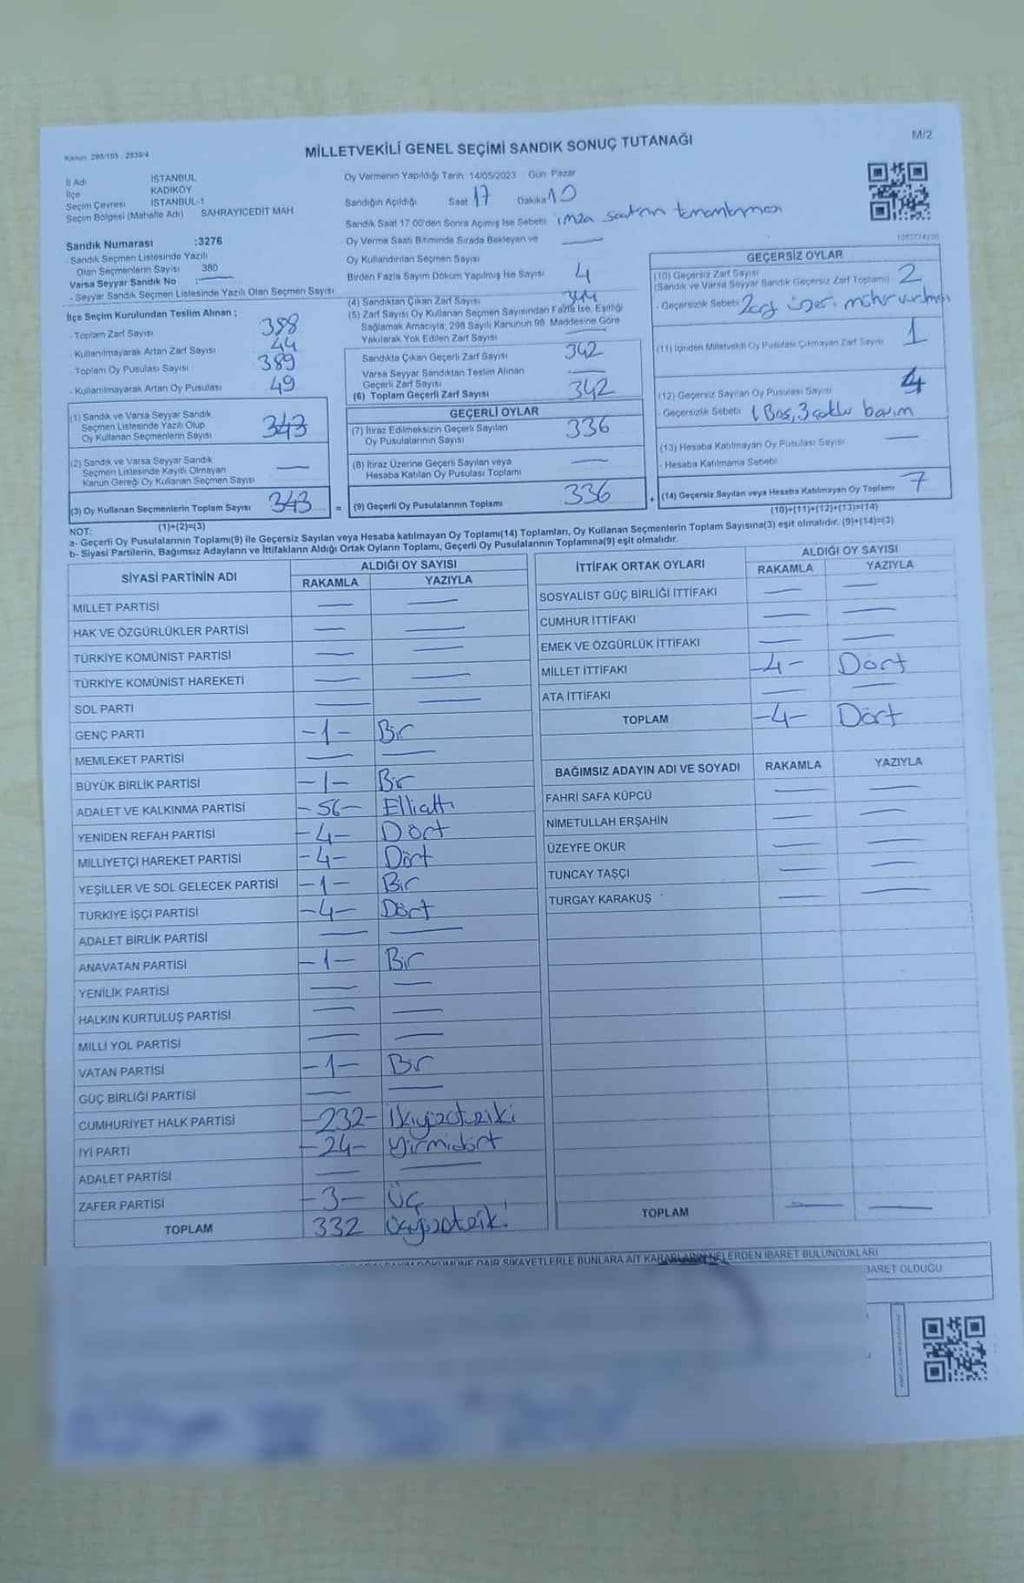 Kanun: 298/105 , 2839/4
M/2
MİLLETVEKİLİ GENEL SEÇİMİ SANDIK SONUÇ TUTANAĞI
İl Adı İSTANBUL
İlçe KADIKÖY
Seçim Çevresi İSTANBUL-1
Seçim Bölgesi (Mahalle Adı) SAHRAYICEDİT MAH
Sandık Numarası :3276
- Sandık Seçmen Listesinde Yazılı
Olan Seçmenlerin Sayısı 380
Varsa Seyyar Sandık No
- Seyyar Sandık Seçmen Listesinde Yazılı Olan Seçmen Sayısı
İlçe Seçim Kurulundan Teslim Alınan ;
- Toplam Zarf Sayısı 398
- Kullanılmayarak Artan Zarf Sayısı 44
- Toplam Oy Pusulası Sayısı 389
- Kullanılmayarak Artan Oy Pusulası 49
(1) Sandık ve Varsa Seyyar Sandık
Seçmen Listesinde Yazılı Olup
Oy Kullanan Seçmenlerin Sayısı 343
(2) Sandık ve Varsa Seyyar Sandık
Seçmen Listesinde Kayıtlı Olmayan
Kanun Gereği Oy Kullanan Seçmen Sayısı —
(3) Oy Kullanan Seçmenlerin Toplam Sayısı 343
(1)+(2)=(3)
Oy Vermenin Yapıldığı Tarih 14/05/2023 Gün Pazar
Sandığın Açıldığı Saat 17 Dakika 10
Sandık Saat 17:00'den Sonra Açılmış İse Sebebi imza
Oy Verme Saati Bitiminde Sırada Bekleyen ve
Oy Kullandırılan Seçmen Sayısı —
Birden Fazla Sayım Döküm Yapılmış İse Sayısı 4
(4) Sandıktan Çıkan Zarf Sayısı 344
(5) Zarf Sayısı Oy Kullanan Seçmen Sayısından Fazla İse, Eşitliği
Sağlamak Amacıyla; 298 Sayılı Kanunun 98. Maddesine Göre
Yakılarak Yok Edilen Zarf Sayısı —
Sandıkta Çıkan Geçerli Zarf Sayısı 342
Varsa Seyyar Sandıktan Teslim Alınan
Geçerli Zarf Sayısı —
(6) Toplam Geçerli Zarf Sayısı 342
GEÇERLİ OYLAR
(7) İtiraz Edilmeksizin Geçerli Sayılan
Oy Pusulalarının Sayısı 336
(8) İtiraz Üzerine Geçerli Sayılan veya
Hesaba Katılan Oy Pusulası Toplamı —
= (9) Geçerli Oy Pusulalarının Toplamı 336
GEÇERSİZ OYLAR
(10) Geçersiz Zarf Sayısı
(Sandık ve Varsa Seyyar Sandık Geçersiz Zarf Toplamı) 2
- Geçersizlik Sebebi 2
(11) İçinden Milletvekili Oy Pusulası Çıkmayan Zarf Sayısı 1
(12) Geçersiz Sayılan Oy Pusulası Sayısı 4
- Geçersizlik Sebebi 1 Boş, 3 çoklu basım
(13) Hesaba Katılmayan Oy Pusulası Sayısı —
- Hesaba Katılmama Sebebi
+ (14) Geçersiz Sayılan veya Hesaba Katılmayan Oy Toplamı 7
(10)+(11)+(12)+(13)=(14)
NOT:
a- Geçerli Oy Pusulalarının Toplamı(9) ile Geçersiz Sayılan veya Hesaba katılmayan Oy Toplamı(14) Toplamları, Oy Kullanan Seçmenlerin Toplam Sayısına(3) eşit olmalıdır. (9)+(14)=(3)
b- Siyasi Partilerin, Bağımsız Adayların ve İttifakların Aldığı Ortak Oyların Toplamı, Geçerli Oy Pusulalarının Toplamına(9) eşit olmalıdır.
SİYASİ PARTİNİN ADI ALDIĞI OY SAYISI
RAKAMLA YAZIYLA
MİLLET PARTİSİ — —
HAK VE ÖZGÜRLÜKLER PARTİSİ — —
TÜRKİYE KOMÜNİST PARTİSİ — —
TÜRKİYE KOMÜNİST HAREKETİ — —
SOL PARTİ — —
GENÇ PARTİ -1- Bir
MEMLEKET PARTİSİ — —
BÜYÜK BİRLİK PARTİSİ -1- Bir
ADALET VE KALKINMA PARTİSİ -56- Ellialtı
YENİDEN REFAH PARTİSİ -4- Dört
MİLLİYETÇİ HAREKET PARTİSİ -4- Dört
YEŞİLLER VE SOL GELECEK PARTİSİ -1- Bir
TÜRKİYE İŞÇİ PARTİSİ -4- Dört
ADALET BİRLİK PARTİSİ — —
ANAVATAN PARTİSİ -1- Bir
YENİLİK PARTİSİ — —
HALKIN KURTULUŞ PARTİSİ — —
MİLLİ YOL PARTİSİ — —
VATAN PARTİSİ -1- Bir
GÜÇ BİRLİĞİ PARTİSİ — —
CUMHURİYET HALK PARTİSİ -232- İkiyüzotuziki
İYİ PARTİ -24- Yirmidört
ADALET PARTİSİ — —
ZAFER PARTİSİ -3- Üç
TOPLAM 332 Üçyüzotuziki
İTTİFAK ORTAK OYLARI ALDIĞI OY SAYISI
RAKAMLA YAZIYLA
SOSYALİST GÜÇ BİRLİĞİ İTTİFAKI — —
CUMHUR İTTİFAKI — —
EMEK VE ÖZGÜRLÜK İTTİFAKI — —
MİLLET İTTİFAKI -4- Dört
ATA İTTİFAKI — —
TOPLAM -4- Dört
BAĞIMSIZ ADAYIN ADI VE SOYADI RAKAMLA YAZIYLA
FAHRİ SAFA KÜPCÜ — —
NİMETULLAH ERŞAHİN — —
ÜZEYFE OKUR — —
TUNCAY TAŞÇI — —
TURGAY KARAKUŞ — —
TOPLAM — —
DAİR ŞİKAYETLERLE BUNLARA AİT KARARLARIN NELERDEN İBARET BULUNDUKLARI
İBARET OLDUĞU